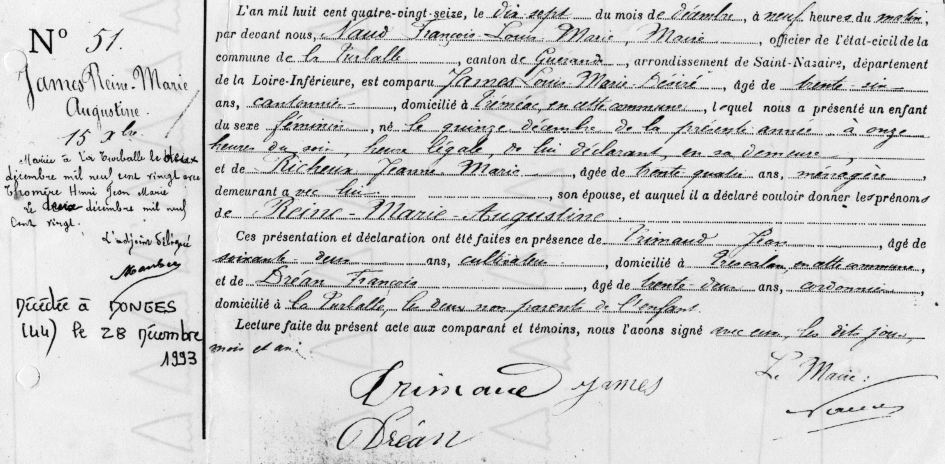 N° 51.
James Reine-Marie
Augustine.
15 Xbre
Mariée à La Turballe le deux
décembre mil neuf cent vingt avec
Thomère Henri Jean Marie
Le deux décembre mil neuf
Cent vingt.
L'adjoint délégué
Décédée à DONGES
(44) le 28 Décembre
1993
L'an mil huit cent quatre-vingt-seize, le dix sept du mois de décembre, à neuf heures du matin,
par devant nous, Naud François-Louis Marie, Maire, officier de l'état-civil de la
commune de la Turballe, canton de Guérande, arrondissement de Saint-Nazaire, département
de la Loire-Inférieure, est comparu James Louis Marie Désiré, âgé de trente-six
ans, cantonnier, domicilié à Tréméac, en cette commune, lequel nous a présenté un enfant
du sexe féminin, né le quinze décembre de la présente année à onze
heures du soir, heure légale, de lui déclarant, en sa demeure,
et de Richeux Jeanne Marie, âgée de trente quatre ans, ménagère,
demeurant avec lui, son épouse, et auquel il a déclaré vouloir donner les prénoms
de Reine-Marie-Augustine.
Ces présentation et déclaration ont été faites en présence de Trimaud Jean, âgé de
soixante deux ans, cultivateur, domicilié à en cette commune,
et de Dréan François, âgé de trente-deux ans, cordonnier,
domicilié à la Turballe, les deux non parents de l'enfant.
Lecture faite du présent acte aux comparant et témoins, nous l'avons signé avec eux, les dits jour,
mois et an.
Trimaud James
Le Maire:
Naud
Dréan